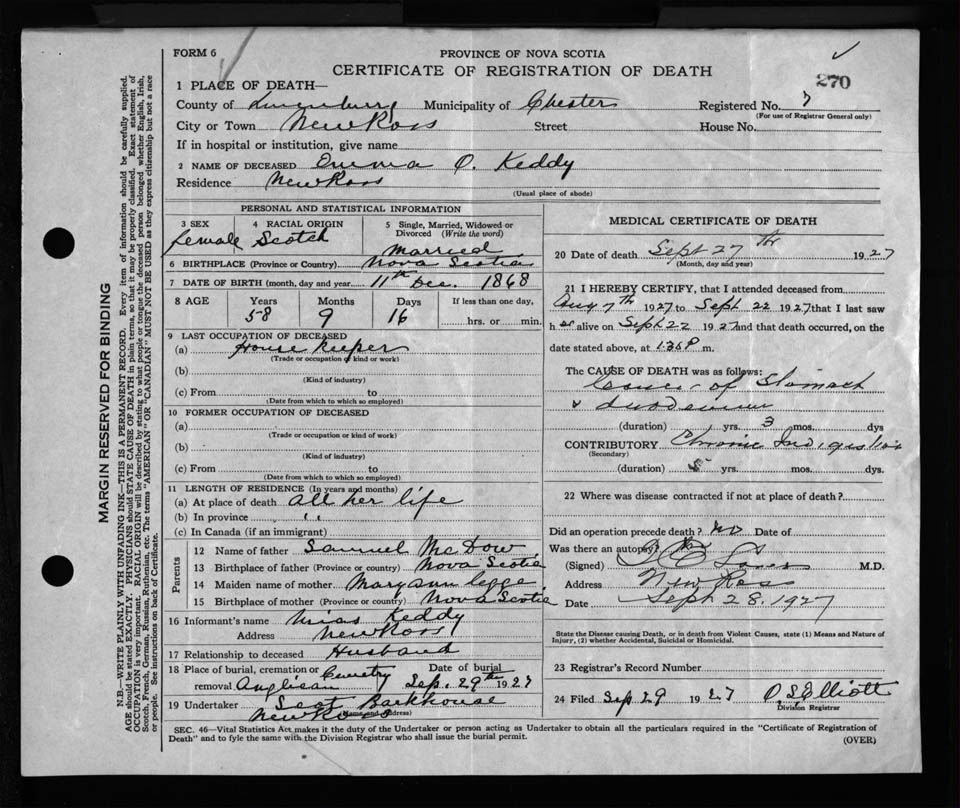 FORM 6
PROVINCE OF NOVA SCOTIA
CERTIFICATE OF REGISTRATION OF DEATH
270
1 PLACE OF DEATH—
County of Lunenburg Municipality of Chester Registered No. 7
(For use of Registrar General only)
City or Town New Ross Street House No.
If in hospital or institution, give name
2 NAME OF DECEASED Emma O. Keddy
Residence New Ross
(Usual place of abode)
PERSONAL AND STATISTICAL INFORMATION
3 SEX 4 RACIAL ORIGIN 5 Single, Married, Widowed or Divorced (Write the word)
female Scotch Married
6 BIRTHPLACE (Province or Country) Nova Scotia
7 DATE OF BIRTH (month, day and year) 11th Dec. 1868
8 AGE Years Months Days If less than one day,
58 9 16 hrs. or min.
9 LAST OCCUPATION OF DECEASED
(a) House keeper
(Trade or occupation of kind or work)
(b)
(Kind of industry)
(c) From to
(Date from which to which so employed)
10 FORMER OCCUPATION OF DECEASED
(a)
(Trade or occupation or kind of work)
(b)
(Kind of industry)
(c) From to
(Date from which to which so employed)
11 LENGTH OF RESIDENCE (In years and months)
(a) At place of death all her life
(b) In province " "
(c) In Canada (if an immigrant)
Parents
12 Name of father Samuel McDow
13 Birthplace of father (Province or country) Nova Scotia
14 Maiden name of mother Maryann
15 Birthplace of mother (Province or country) Nova Scotia
16 Informant's name Keddy
Address New Ross
17 Relationship to deceased Husband
18 Place of burial, cremation or removal Anglican Cemetry Date of burial Sep. 29th 1927
19 Undertaker Barkhouse
New Ross
(Name and address)
MEDICAL CERTIFICATE OF DEATH
20 Date of death Sept 27th 1927
(Month, day and year)
21 I HEREBY CERTIFY, that I attended deceased from
Aug 7th 1927 to Sept 22 1927 that I last saw
h er alive on Sept 22 1927 and that death occurred, on the
date stated above, at 1.30 P m.
The CAUSE OF DEATH was as follows:
Cancer of Stomach
& duodenum
(duration) yrs. 3 mos. dys
CONTRIBUTORY Chronic Indigestion
(Secondary)
(duration) 5 yrs. mos. dys.
22 Where was disease contracted if not at place of death?
Did an operation precede death? No Date of
Was there an autopsy? No
(Signed) M.D.
Address New Ross
Date Sept 28. 1927
State the Disease causing Death, or in death from Violent Causes, state (1) Means and Nature of
Injury, (2) whether Accidental, Suicidal or Homicidal.
23 Registrar's Record Number
24 Filed Sep 29 1927 O. S. Elliott
Division Registrar
SEC. 46—Vital Statistics Act makes it the duty of the Undertaker or person acting as Undertaker to obtain all the particulars required in the "Certificate of Registration of
Death" and to fyle the same with the Division Registrar who shall issue the burial permit.
(OVER)
MARGIN RESERVED FOR BINDING
N.B.—WRITE PLAINLY WITH UNFADING INK—THIS IS A PERMANENT RECORD. Every item of information should be carefully supplied.
AGE should be stated EXACTLY. PHYSICIANS should STATE CAUSE OF DEATH in plain terms, so that it may be properly classified. Exact statement of
OCCUPATION is very important. RACIAL ORIGIN will be described by stating to what people or tongue the deceased person belonged whether English, Irish,
Scotch, French, German, Russian, Ruthenian, etc. The terms "AMERICAN" OR "CANADIAN" MUST NOT BE USED as they express citizenship but not a race
or people. See instructions on back of Certificate.